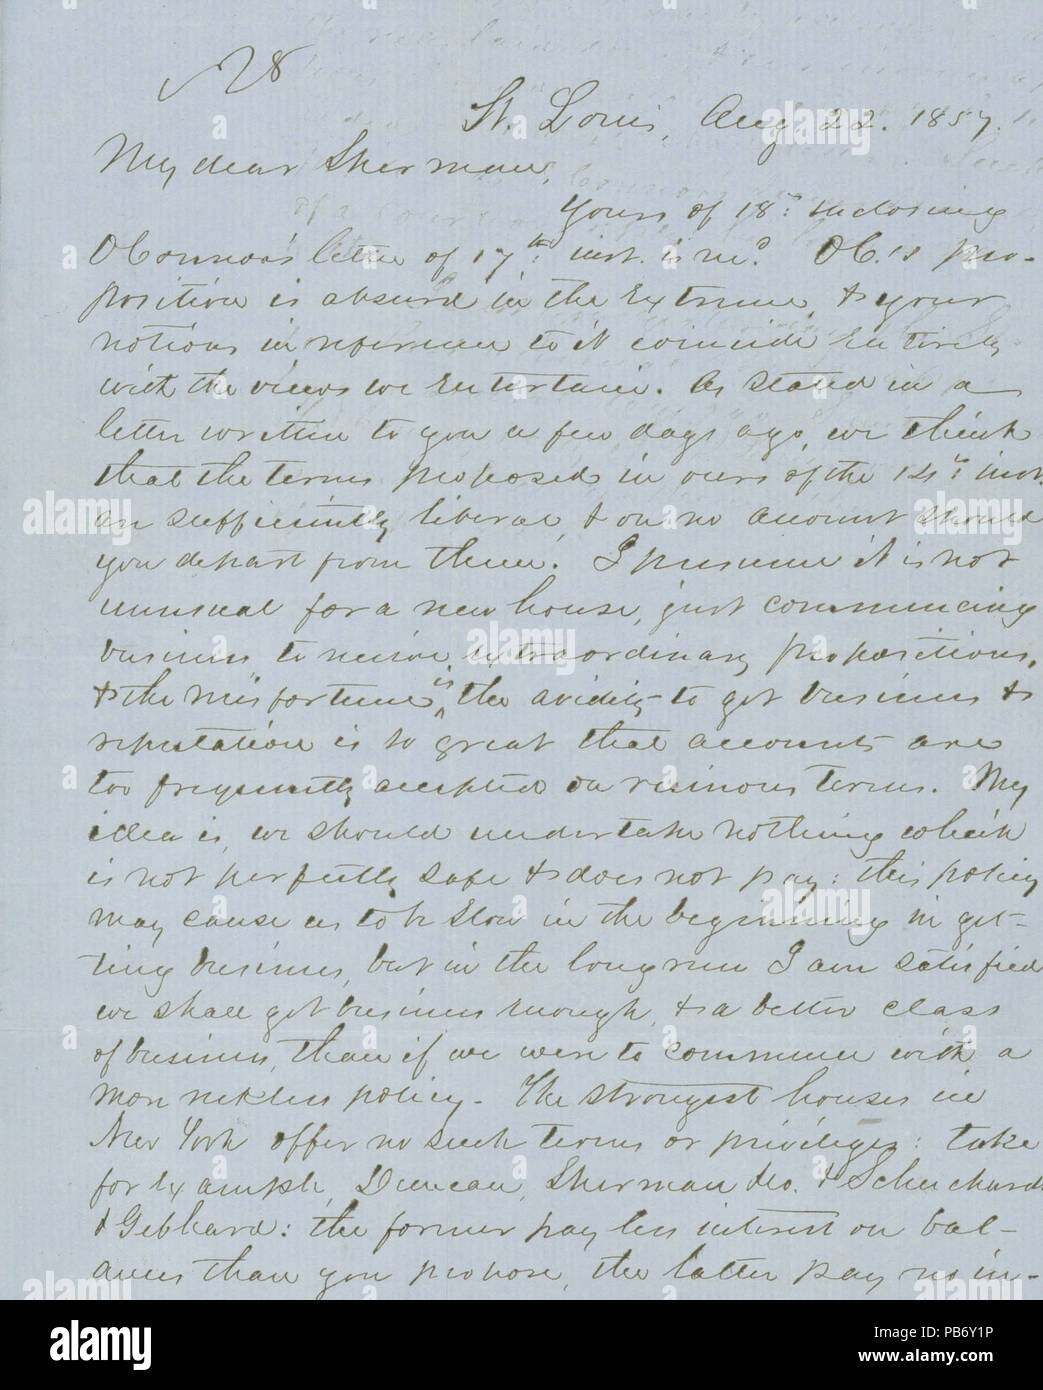 No 8
St. Louis, Aug. 22. 1857.
My dear Sherman,
Yours of 18th inclosing
O'Connor's letter of 17th inst. is recd. O'C.'s pro-
position is absurd in the extreme, & your
notions in reference to it coincide entirely
with the views we entertain. As stated in a
letter written to you a few days ago, we think
that the terms proposed in ours of the 14th inst.
are sufficiently liberal, & on no account should
you depart from them. I presume it is not
unusual for a new house, just commencing
business, to receive extraordinary propositions,
& the misfortune is, the avidity to get business &
reputation is so great that accounts are
too frequently accepted on ruinous terms. My
idea is, we should undertake nothing which
is not perfectly safe & does not pay: this policy
may cause us to be slow in the beginning in get-
ting business, but in the long run I am satisfied
we shall get business enough, & a better class
of business, than if we were to commence with a
more reckless policy. The strongest houses in
New York offer no such terms or privileges: take
for example, Duncan, Sherman & Co. & Schuchardt
& Gebhard: the former pay less interest on bal-
ances than you propose, the latter pay no in-
alamy
alamy stock photo
a
alamy
Image ID: PB6Y1P
www.alamy.com